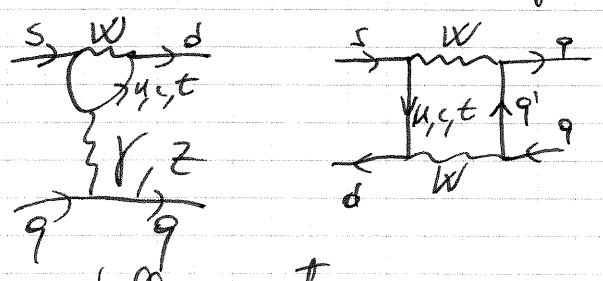 s W d
u, c, t
γ, Z
q q
s W q
u, c, t q'
d W q